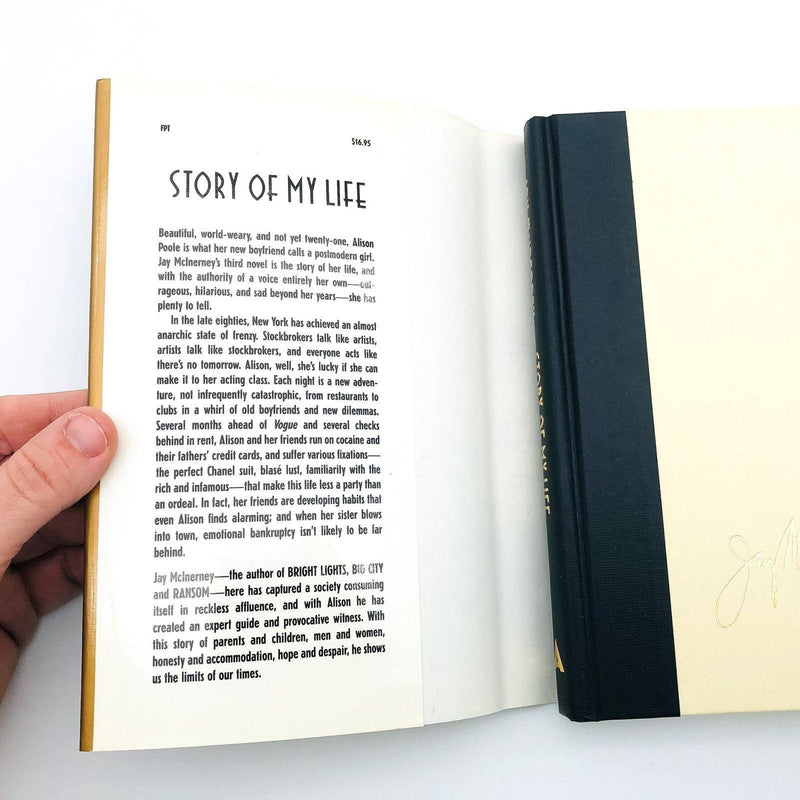 FPT
$16.95
STORY OF MY LIFE
Beautiful, world-weary, and not yet twenty-one, Alison
Poole is what her new boyfriend calls a postmodern girl.
Jay McInerney's third novel is the story of her life, and
with the authority of a voice entirely her own—out-
rageous, hilarious, and sad beyond her years—she has
plenty to tell.
In the late eighties, New York has achieved an almost
anarchic state of frenzy. Stockbrokers talk like artists,
artists talk like stockbrokers, and everyone acts like
there's no tomorrow. Alison, well, she's lucky if she can
make it to her acting class. Each night is a new adven-
ture, not infrequently catastrophic, from restaurants to
clubs in a whirl of old boyfriends and new dilemmas.
Several months ahead of Vogue and several checks
behind in rent, Alison and her friends run on cocaine and
their fathers' credit cards, and suffer various fixations—
the perfect Chanel suit, blasé lust, familiarity with the
rich and infamous—that make this life less a party than
an ordeal. In fact, her friends are developing habits that
even Alison finds alarming; and when her sister blows
into town, emotional bankruptcy isn't likely to be far
behind.
Jay McInerney—the author of BRIGHT LIGHTS, BIG CITY
and RANSOM—here has captured a society consuming
itself in reckless affluence, and with Alison he has
created an expert guide and provocative witness. With
this story of parents and children, men and women,
honesty and accommodation, hope and despair, he shows
us the limits of our times.
STORY OF MY LIFE
Jay M